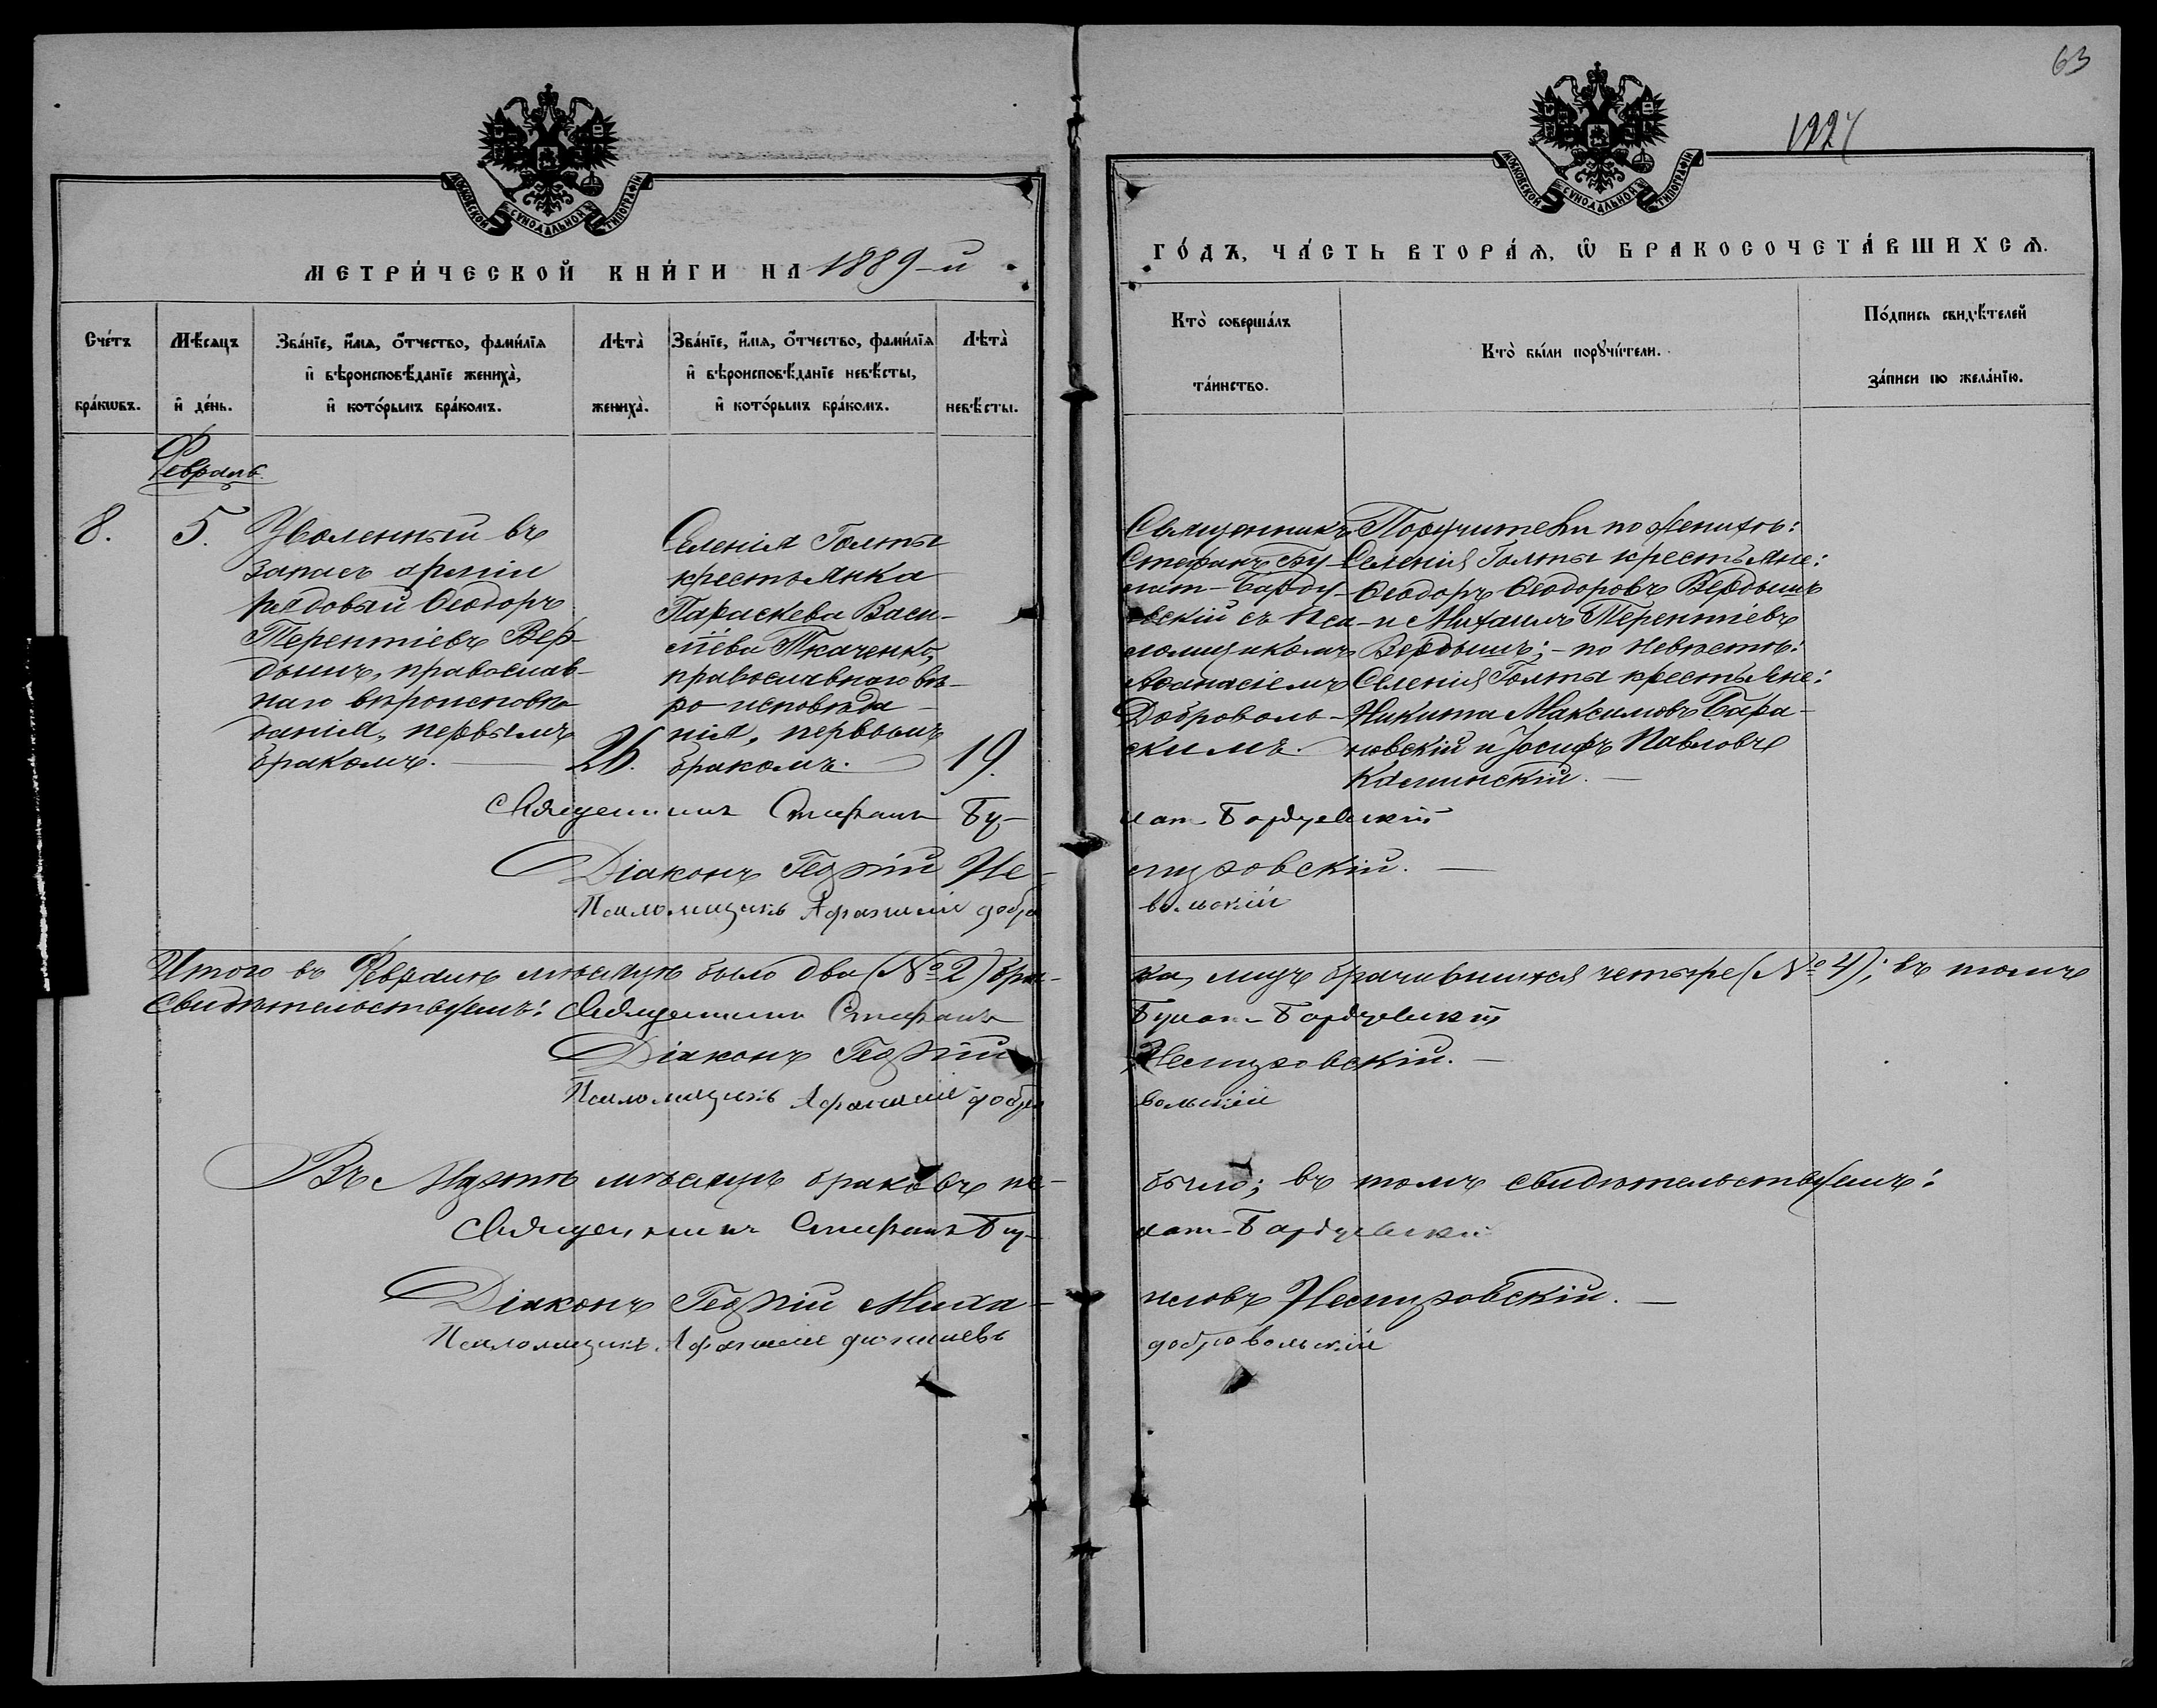 63
1224
МОСКОВСКОЙ СѴНОДАЛЬНОЙ ТИПОГРАФІИ
МОСКОВСКОЙ СѴНОДАЛЬНОЙ ТИПОГРАФІИ
МЕТРИ́ЧЕСКОЙ КНИ́ГИ НА 1889-й
ГО́ДЪ, ЧА́СТЬ ВТОРА́Я, Ѿ БРАКОСОЧЕТА́ВШИХСѦ.
Сче́тъ бра́кѡвъ.
Мѣ́сяцъ и҆ де́нь.
Зва́нїе, и҆́мя, ѻ҆́тчество, фами́лїя
и҆ вѣроисповѣ́данїе жениха̀,
и҆ кото́рымъ бра́комъ.
Лѣта̀ жениха̀.
Зва́нїе, и҆́мя, ѻ҆́тчество, фами́лїя
и҆ вѣроисповѣ́данїе невѣ́сты,
и҆ кото́рымъ бра́комъ.
Лѣта̀ невѣ́сты.
Кто̀ соверша́лъ
та́инство.
Кто̀ бы́ли порꙋчи́тели.
По́дпись свидѣ́телей
за́писи по жела́нїю.
Февраль.
8.
5.
Уволенный въ
запасъ арміи
рядовый Ѳеодоръ
Терентіевъ Вер-
дышъ, православ-
наго вѣроисповѣ-
данія, первымъ
бракомъ. —
26.
Селенія Голты
крестьянка
Параскева Васи-
ліева Ткаченко,
православнаго вѣ-
ро-исповѣда-
нія, первымъ
бракомъ.
19.
Священникъ
Стефанъ Бу-
лат-Барду-
евскій съ Пса-
ломщикомъ
Аѳанасіемъ
Доброволь-
скимъ.
Поручители по женихѣ:
Селенія Голты крестьяне:
Ѳеодоръ Ѳеодоровъ Вердышъ
и Михаилъ Терентіевъ
Вердышъ; - по невѣстѣ:
Селенія Голты крестьяне:
Никита Максимовъ Бара-
новскій и Іосифъ Павловъ
Каминскій. —
Священникъ Стефанъ Булат-Бардуевскій
Діаконъ Георгій Немировскій. —
Псаломщикъ Афанасій Добровольскій
Итого въ Февралѣ мѣсяцѣ было два (№ 2) брака, лицъ брачившихся четыре (№ 4); въ томъ
свидѣтельствуемъ: Священникъ Стефанъ Булат-Бардуевскій
Діаконъ Георгій Немировскій. —
Псаломщикъ Афанасій Добровольскій
Въ Мартѣ мѣсяцѣ браковъ не было; въ томъ свидѣтельствуемъ:
Священникъ Стефанъ Булат-Бардуевскій
Діаконъ Георгій Михаиловъ Немировскій. —
Псаломщикъ Афанасій Добровольскій